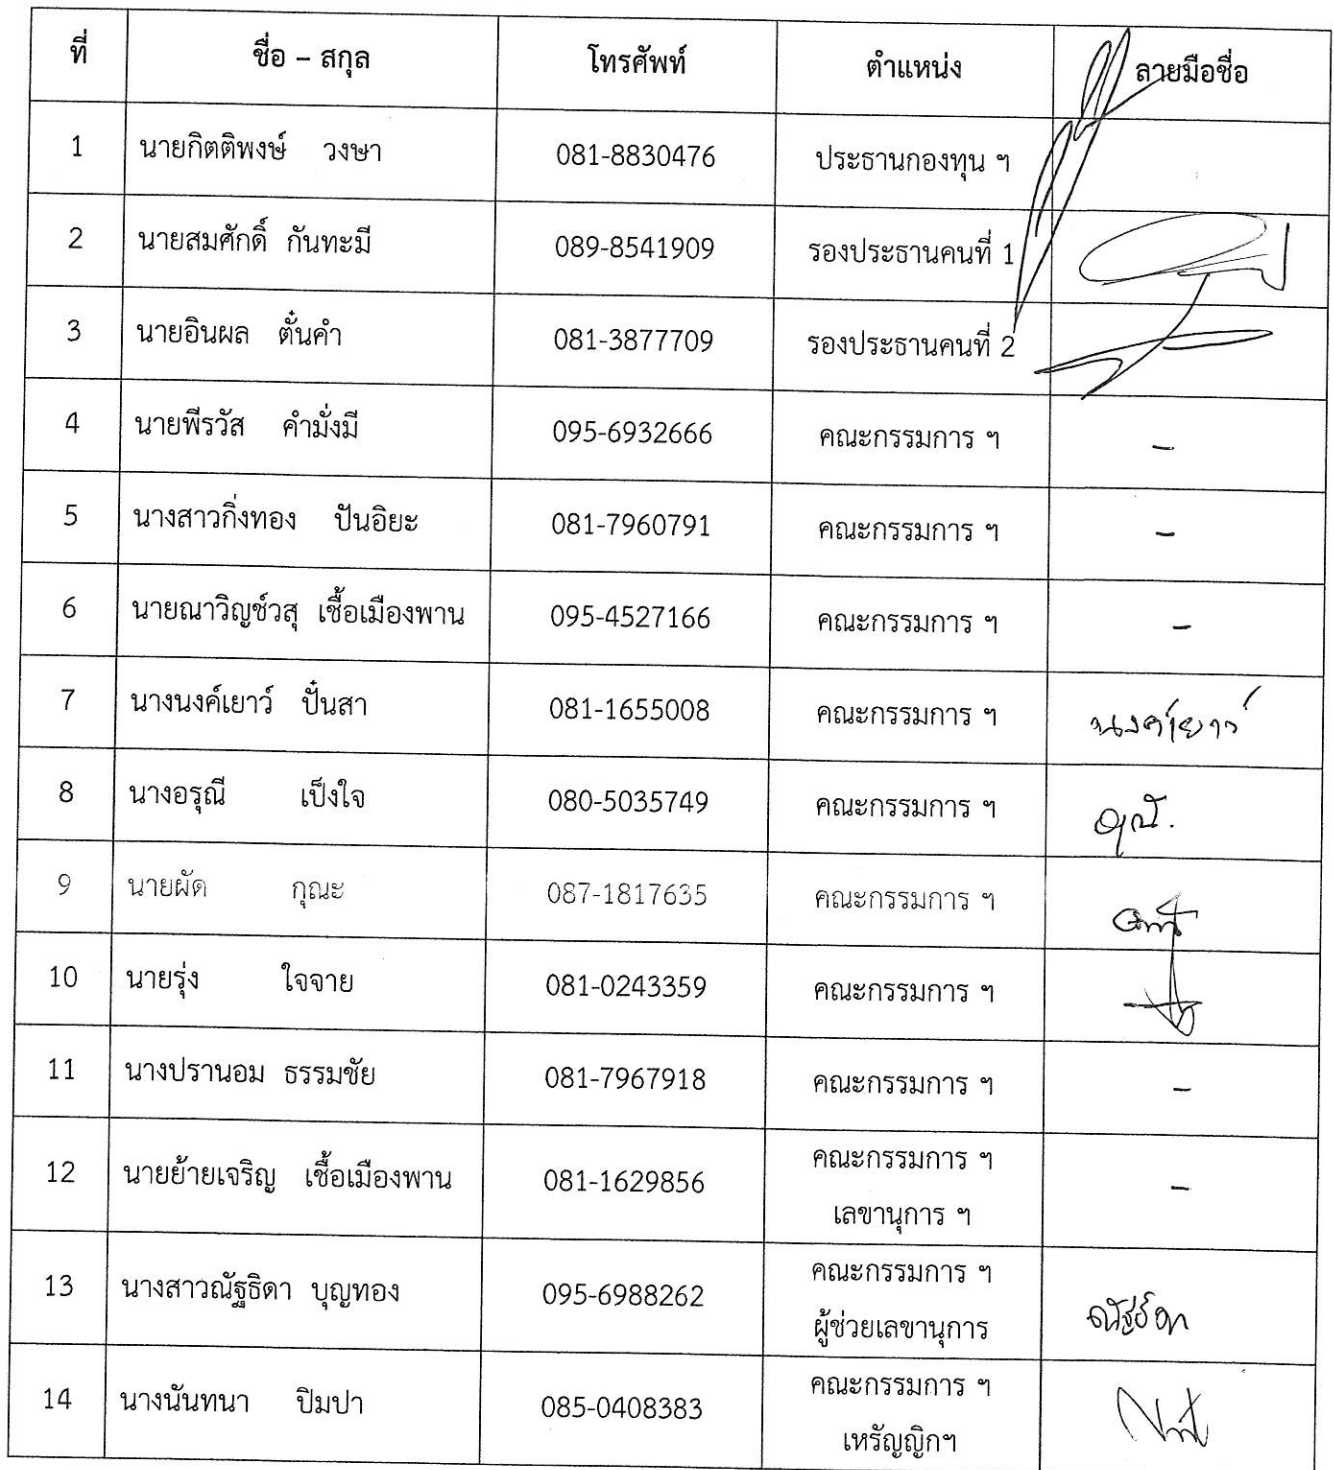 ที่ ชื่อ – สกุล โทรศัพท์ ตำแหน่ง ลายมือชื่อ
1 นายกิตติพงษ์ วงษา 081-8830476 ประธานกองทุน ฯ
2 นายสมศักดิ์ กันทะมี 089-8541909 รองประธานคนที่ 1
3 นายอินผล ตั๋นคำ 081-3877709 รองประธานคนที่ 2
4 นายพีรวัส คำมั่งมี 095-6932666 คณะกรรมการ ฯ -
5 นางสาวกิ่งทอง ปันอิยะ 081-7960791 คณะกรรมการ ฯ -
6 นายณาวิญช์วสุ เชื้อเมืองพาน 095-4527166 คณะกรรมการ ฯ -
7 นางนงค์เยาว์ ปั๋นสา 081-1655008 คณะกรรมการ ฯ นงค์เยาว์
8 นางอรุณี เป็งใจ 080-5035749 คณะกรรมการ ฯ
9 นายผัด กุณะ 087-1817635 คณะกรรมการ ฯ
10 นายรุ่ง ใจจาย 081-0243359 คณะกรรมการ ฯ
11 นางปรานอม ธรรมชัย 081-7967918 คณะกรรมการ ฯ -
12 นายย้ายเจริญ เชื้อเมืองพาน 081-1629856 คณะกรรมการ ฯ -
เลขานุการ ฯ
13 นางสาวณัฐธิดา บุญทอง 095-6988262 คณะกรรมการ ฯ ณัฐธิดา
ผู้ช่วยเลขานุการ
14 นางนันทนา ปิมปา 085-0408383 คณะกรรมการ ฯ
เหรัญญิกฯ